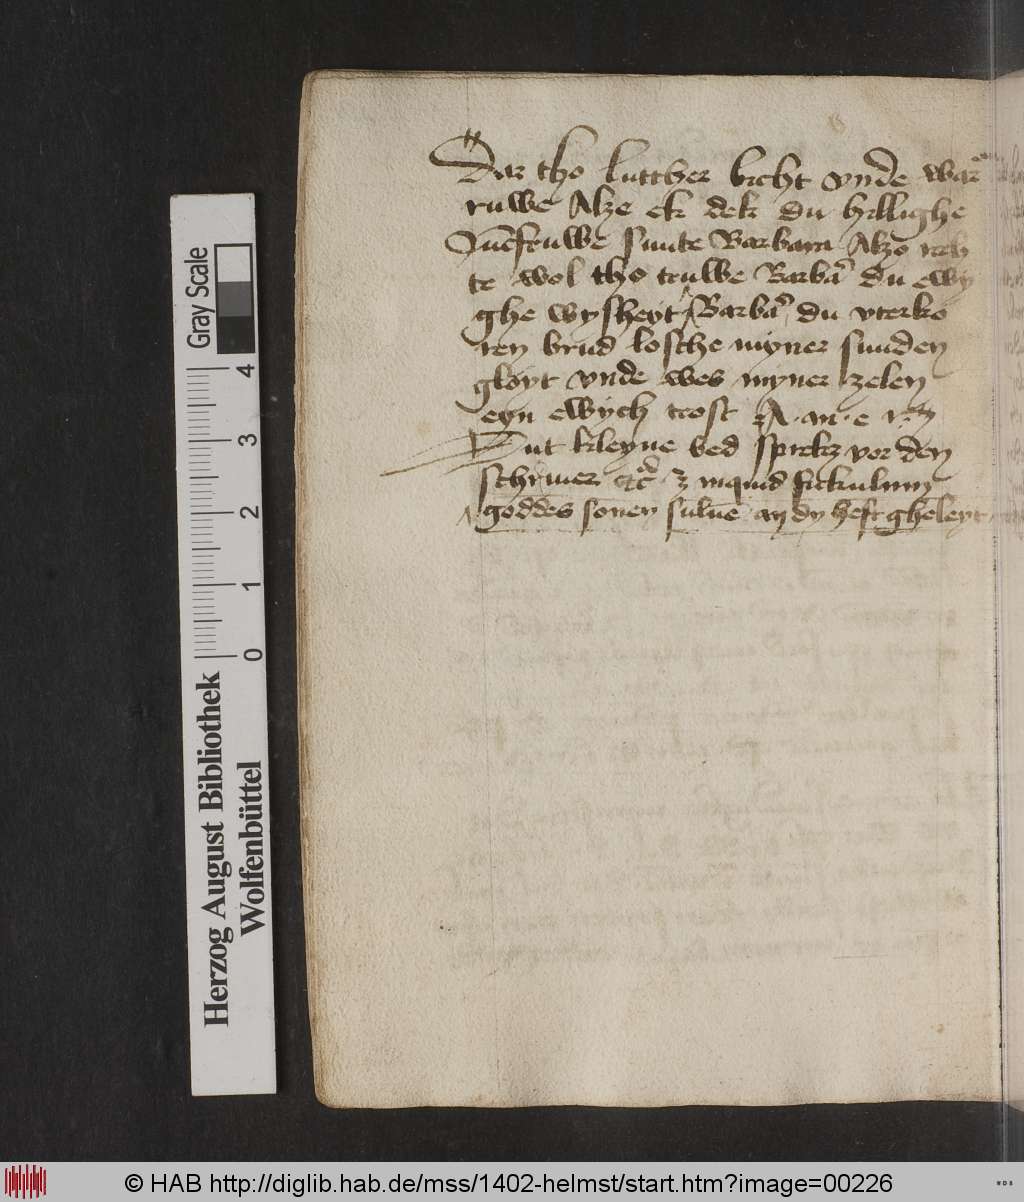 Dar tho lutther bicht vnde war
ruwe Alze ek dek du hillighe
Junfruwe sunte Barbara Alzo rech
te wol tho truwe Barbā du ewy
ghe wysheyt Barbā du vterko
ren brud losche myner sunden
gloyt vnde wes myner zelen
eyn ewych trost A·m·e n
Dut kleyne bed sprekz vor den
schriuer
goddes sonen suluē an dy heft gheleyt
Gray Scale
4
3
2
1
0
Herzog August Bibliothek
Wolfenbüttel
© HAB http://diglib.hab.de/mss/1402-helmst/start.htm?image=00226